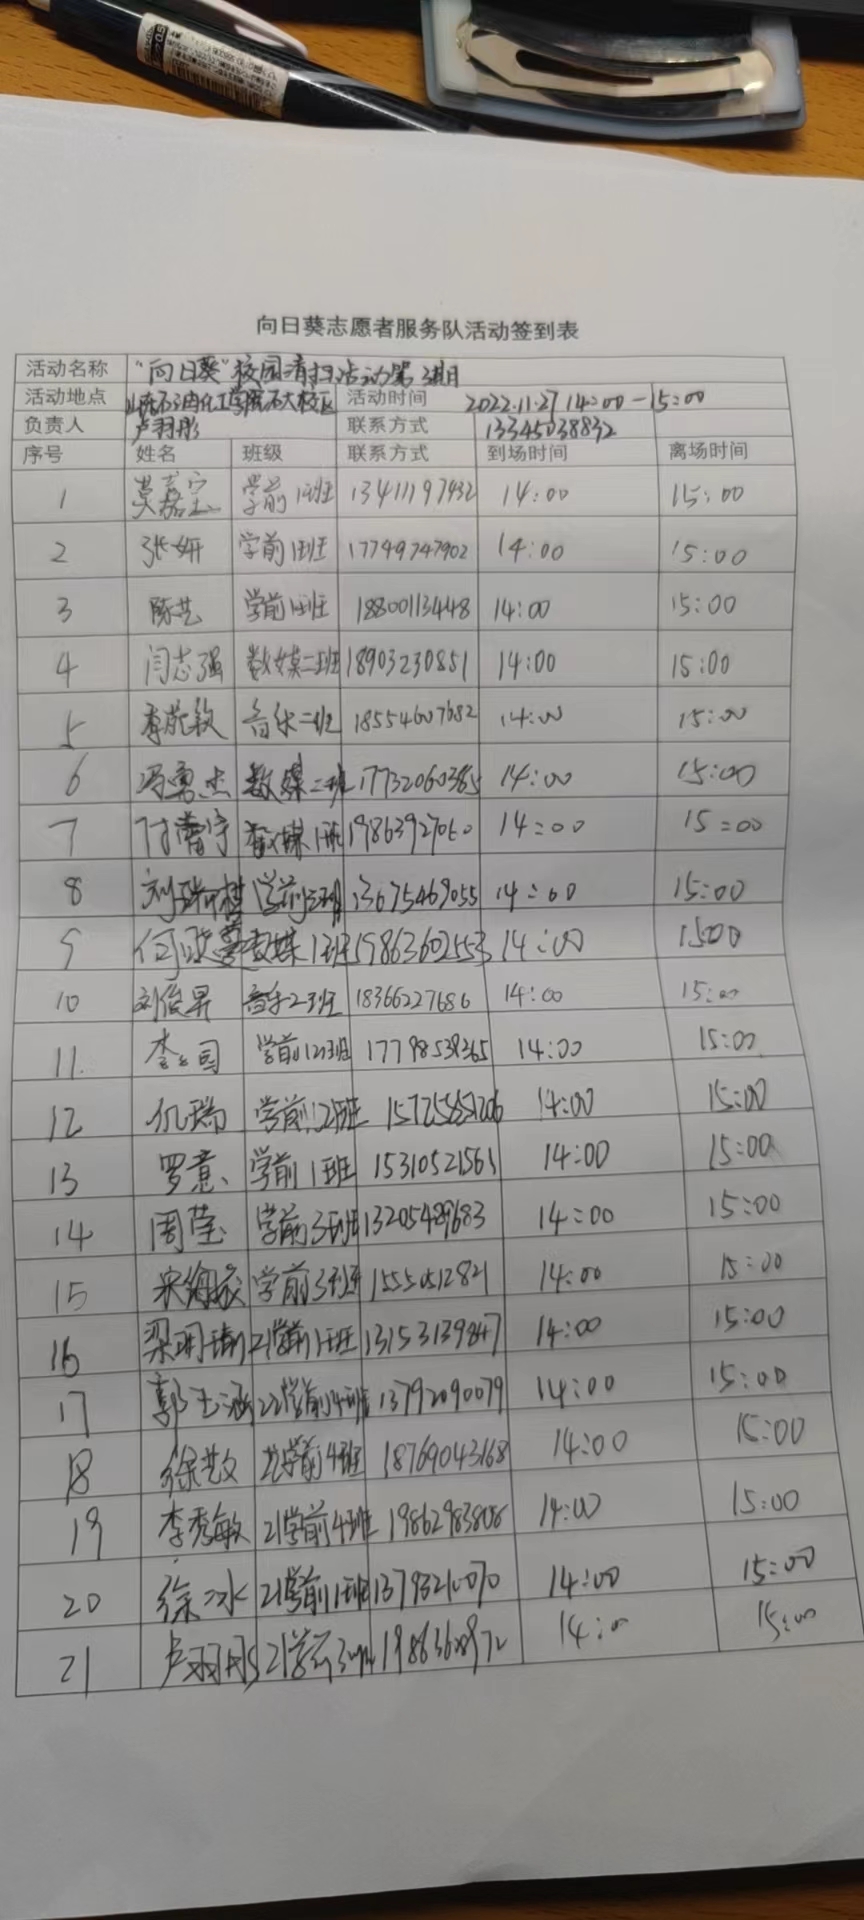 0.5
向日葵志愿者服务队活动签到表
活动名称 "向日葵"校园清扫活动第3期
活动地点 山东石油化工学院石大校区 活动时间 2022.11.27 14:00-15:00
负责人 卢羽彤 联系方式 13345038832
序号 姓名 班级 联系方式 到场时间 离场时间
1 莫嘉宝 学前1班 13411197432 14:00 15:00
2 张妍 学前1班 17749747902 14:00 15:00
3 陈艺 学前1班 18800113448 14:00 15:00
4 闫志强 数媒二班 18903230851 14:00 15:00
5 音乐二班 18554607682 14:00 15:00
6 冯勇杰 数媒二班 17732060365 14:00 15:00
7 付蕾宇 数媒1班 19863927060 14:00 15:00
8 刘瑞祺 学前3班 13675469055 14:00 15:00
9 数媒1班 19863602553 14:00 1500
10 刘俊昇 音乐2班 18366227686 14:00 15:00
11. 学前 17798539365 14:00 15:00
12 仉瑞 学前12班 14:00 15:00
13 罗意 学前1班 15310521561 14:00 15:00
14 周莹 学前3班 13205489683 14:00 15:00
15 学前3班 14:00 15:00
16 21学前1班 13153139847 14:00 15:00
17 郭玉涵 22学前4班 13792090079 14:00 15:00
18 学前4班 18769043168 14:00 15:00
19 李秀敏 21学前4班 19862983806 14:00 15:00
20 徐冰 21学前1班 13793210070 14:00 15:00
21 卢羽彤 21学前3班 14:00 15:00